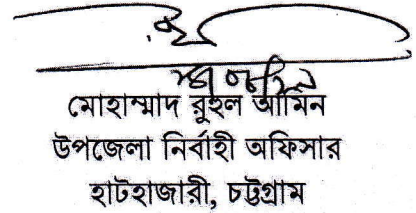 মোহাম্মাদ রুহুল আমিন
উপজেলা নির্বাহী অফিসার
হাটহাজারী, চট্টগ্রাম